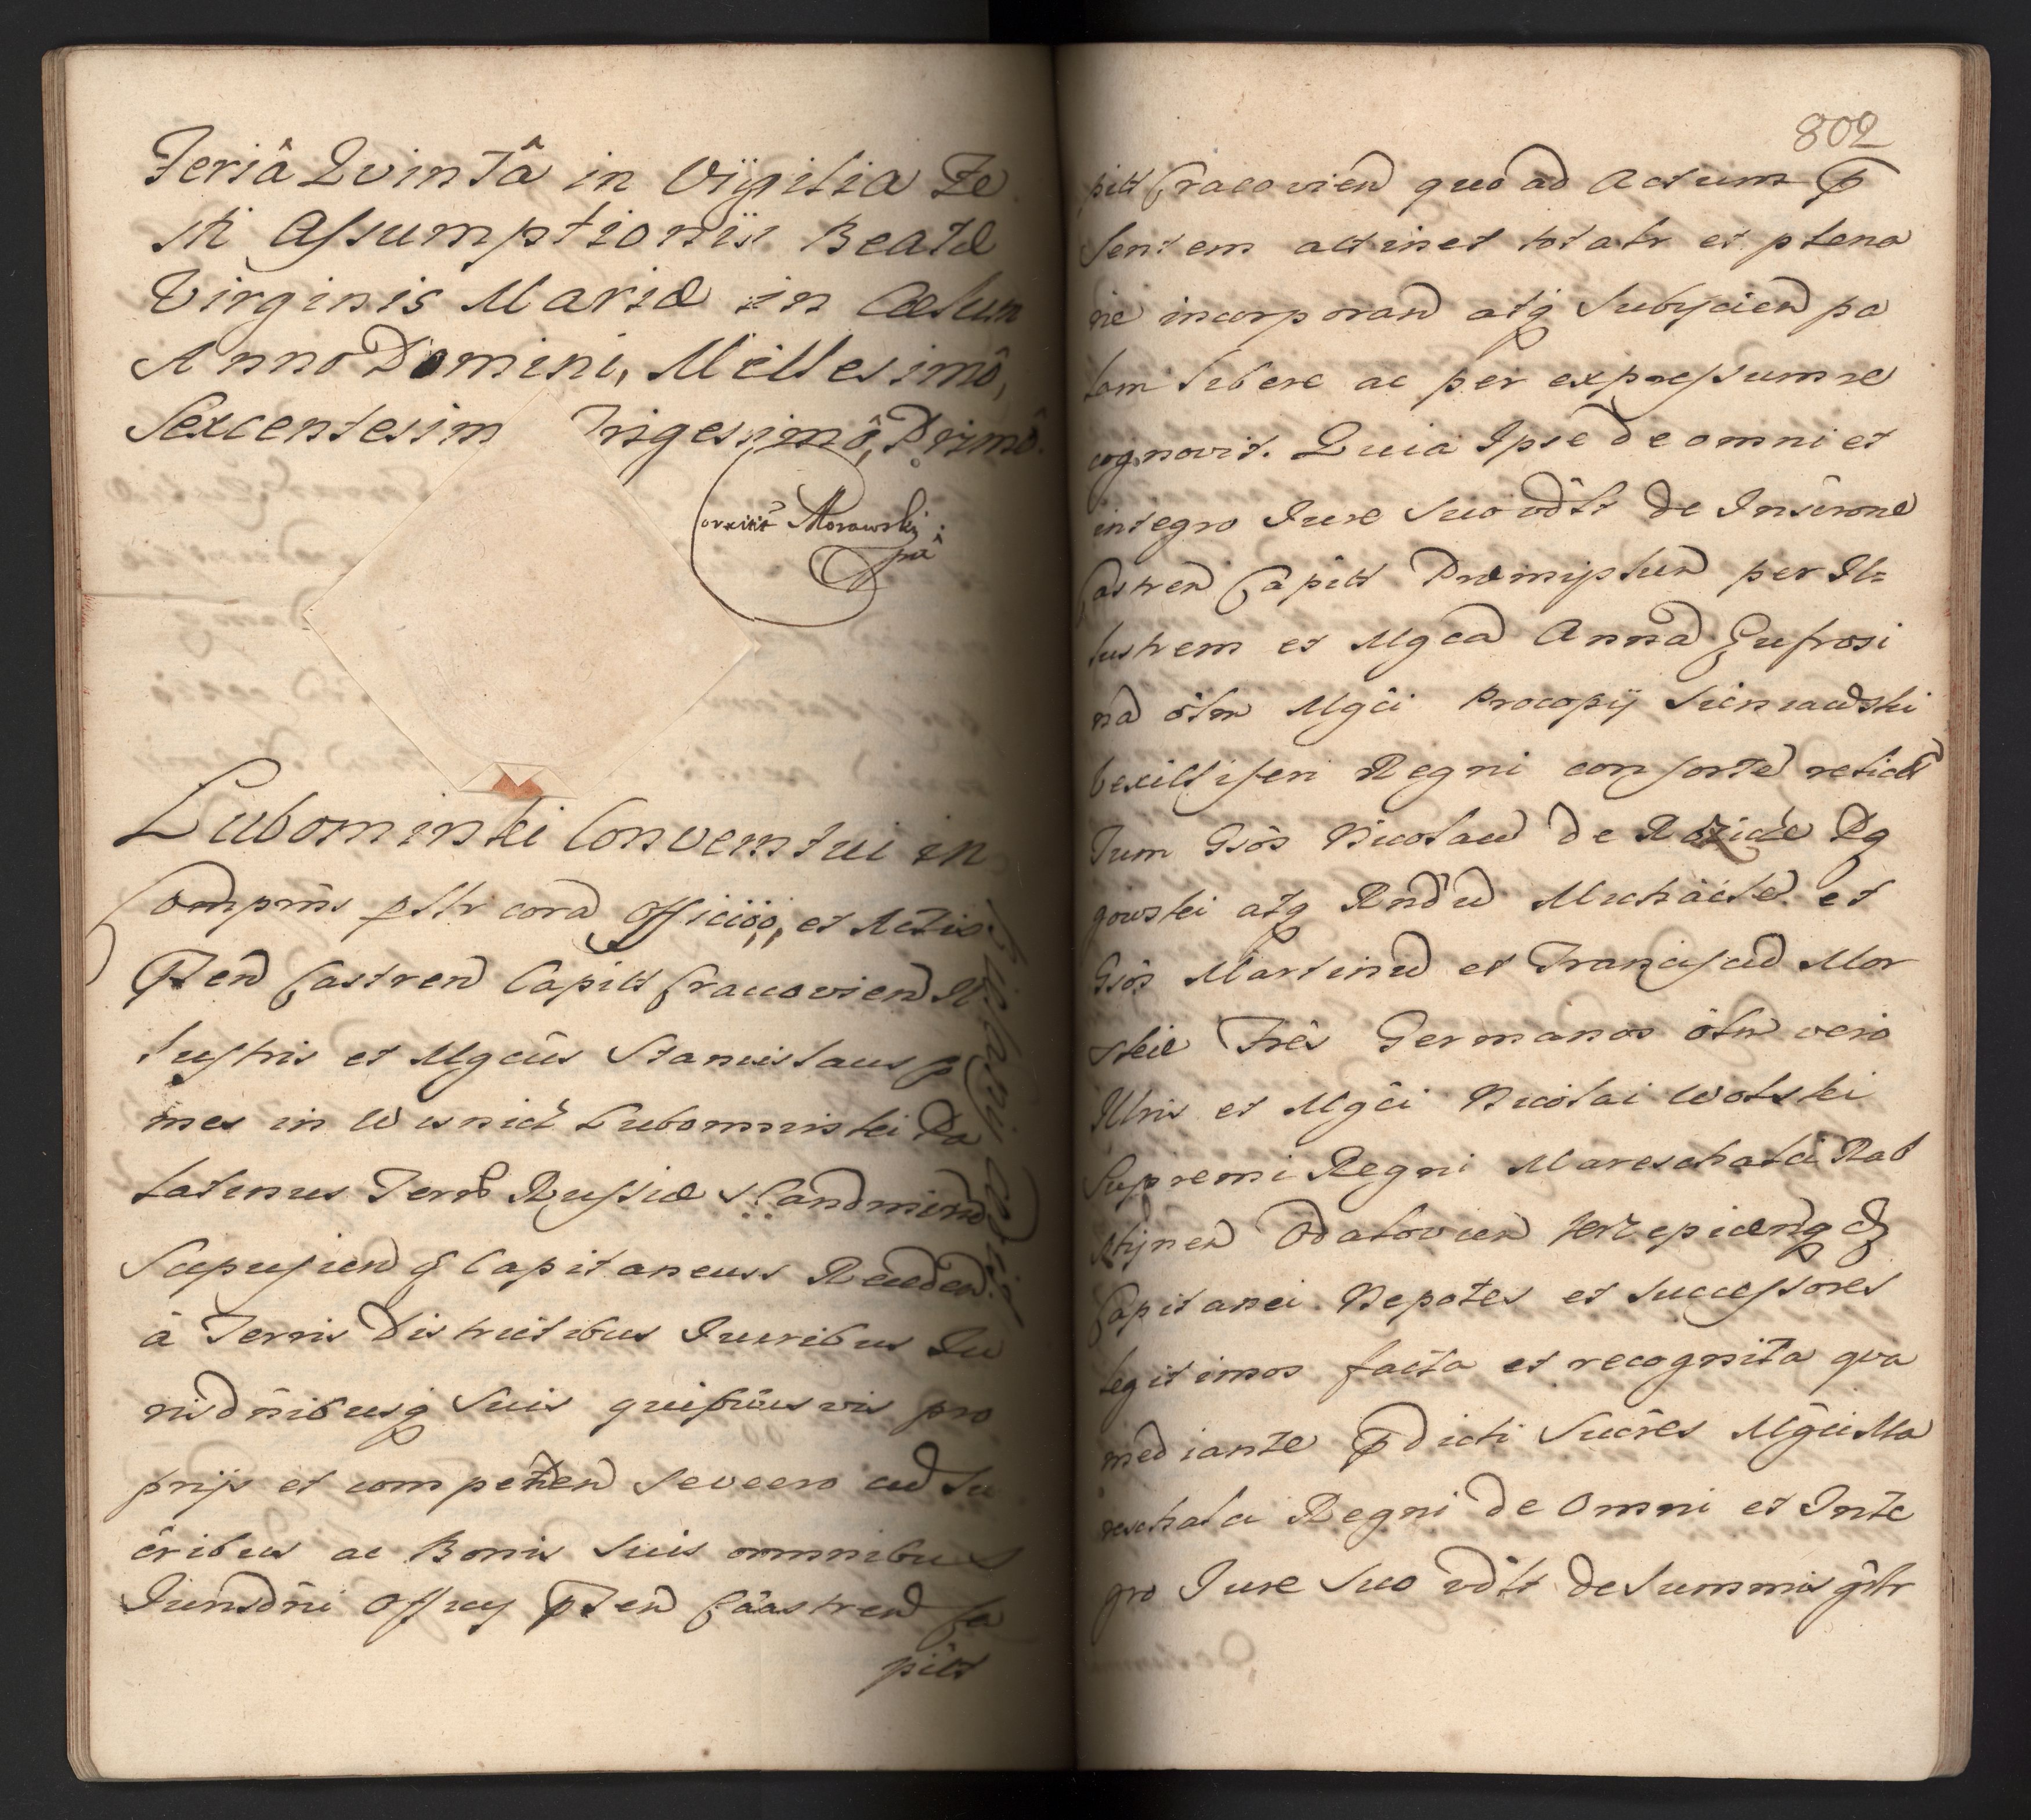 Feriâ Qvintâ in Vigilia Fe
sti Assumptionis Beatæ
Virginis Mariæ in Cælum
Anno Domini, Millesimô,
Sexcentesim Trigesimô, Primô.
Correxit Morawski
Lubomirski Conventui in
Comprns psltr cora Officiöö, et Actis
Pten Castren Capitt Cracovien Il
lustris et Mgcus Stanislaus
mes in Wisnicz Lubomirski Pa
latinus Terrû Russiæ Sandmirien
Scepusien q Capitaneus Receden
à Terris Districtibus Iuribus Iu
risdnibusq Suis quibusvis pro
prijs et competen seque ro ad Su
cribus ac Bonis suis omnibus
Iurisdni Officij Pten Caastren Ca
pitt
802
pitt Cracovien quo ad Actum P
sentem attinet totalr et plena
rie incorporan atq Subijcien pa
lam libere ac per expressum re
cognovit. Quia Ipse de omni et
integro Iure Suo vdtt de Inscrone
Castren Capitt Præmyslien per Il=
lustrem et Mgca Anna Eufrosi
na olim Mgci Procopij Sieniawski
vexilliferi Regni consorte relicta
Tum Gsos Nicolau de Rozice Rg
gowski atq Rndu Michaele et
Gsos Martinu et Franciscu Mor
skie Fres Germanos olim vero
Illris et Mgci Nicolai Wolski
Supremi Regni Mareschalci Rab
sztynen Odalovien Krzepicenq &
Capitanei Nepotes et successores
legitimos facta et recognita qva
mediante Pdicti Sucres Mgci Ma
reschalci Regni de Omni et Inte
gro Iure Suo vdtt de Summis gnlr